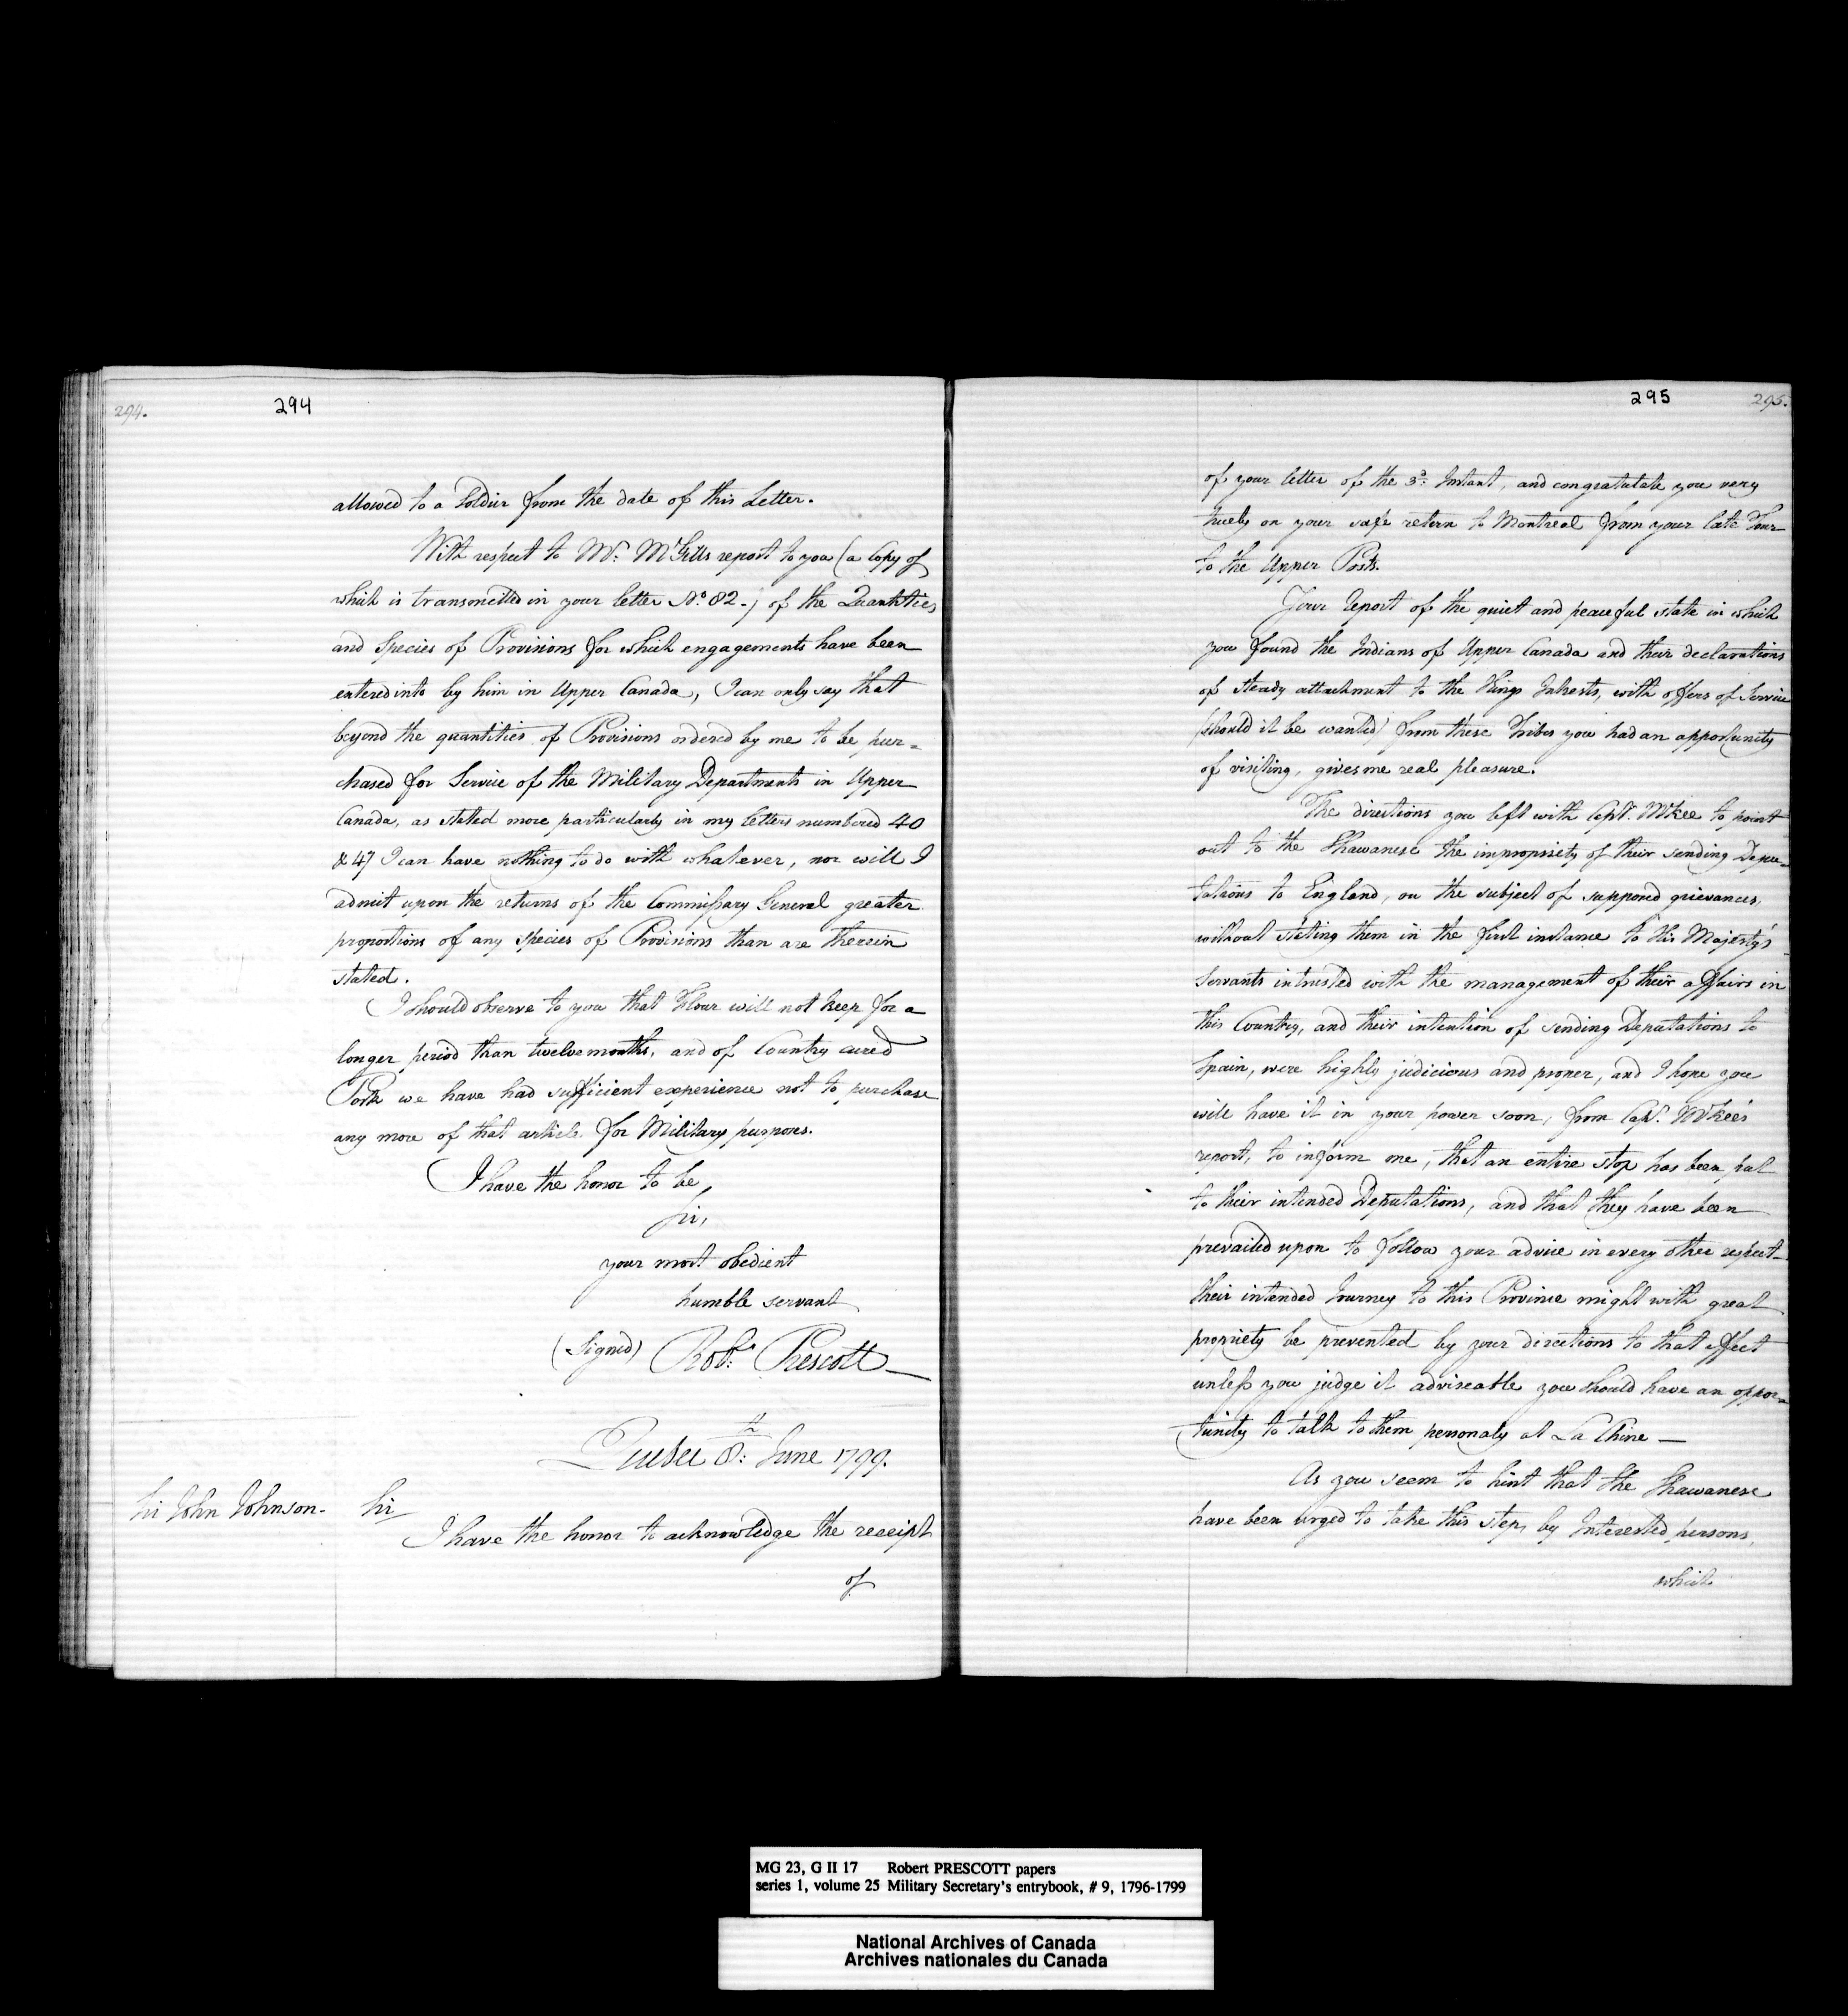 294.
294
allowed to a Soldier from the date of this Letter.
With respect to Mr. McGills report to you (a Copy of
which is transmitted in your letter No. 82.) of the Quantities
and Species of Provisions for which engagements have been
entered into by him in Upper Canada, I can only say that
beyond the quantities of Provisions ordered by me to be pur=
chased for Service of the Military Departments in Upper
Canada, as stated more particularly in my letters numbered 40
& 47 I can have nothing to do with whatever, nor will I
admit upon the returns of the Commissary General greater
proportions of any species of Provisions than are therein
stated.
I should observe to you that Flour will not keep for a
longer period than twelve months, and of Country cured
Pork we have had sufficient experience not to purchase
any more of that article for Military purposes.
I have the honor to be
Sir,
your most obedient
humble servant
(Signed) Robt. Prescott
Quebec 8th June 1799.
Sir John Johnson.
Sir
I have the honor to acknowledge the receipt
of
295
295.
of your letter of the 3d. Instant, and congratulate you very
truely on your safe return to Montreal from your late Tour
to the Upper Posts.
Your report of the quiet and peaceful state in which
you found the Indians of Upper Canada and their declarations
of steady attachment to the Kings Interests, with offers of Service
(should it be wanted) from these Tribes you had an opportunity
of visiting, gives me real pleasure.
The directions you left with Capt. McKee to point
out to the Shawanese the impropriety of their sending Depu=
tations to England, on the subject of supposed grievances,
without stating them in the first instance to His Majesty's
Servants intrusted with the management of their affairs in
this Country, and their intention of sending Deputations to
Spain, were highly judicious and proper, and I hope you
will have it in your power soon, from Capt. McKee's
report, to inform me, that an entire stop has been put
to their intended Deputations, and that they have been
prevailed upon to follow your advice in every other respect_
their intended Journey to this Province might with great
propriety be prevented by your directions to that effect
unless you judge it adviseable you should have an oppor=
tunity to talk to them personaly at La Chine —
As you seem to hint that the Shawanese
have been urged to take this step, by Interested persons,
which
MG 23, G II 17 Robert PRESCOTT papers
series 1, volume 25 Military Secretary's entrybook, # 9, 1796-1799
National Archives of Canada
Archives nationales du Canada